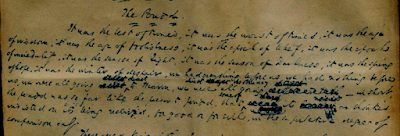 The Period
It was the best of times, it was the worst of times, it was the age
of wisdom, it was the age of foolishness, it was the epoch of belief, it was the epoch
of incredulity, it was the season of Light, it was the season of Darkness, it was the spring
of hope, it was the winter of despair, we had everything before us, we had nothing before
us, we were all going to Heaven, we were all going — in short
the period was so far like the present period, that
insisted on its being received, for good or for evil, in the superlative degree of
comparison only.
There were